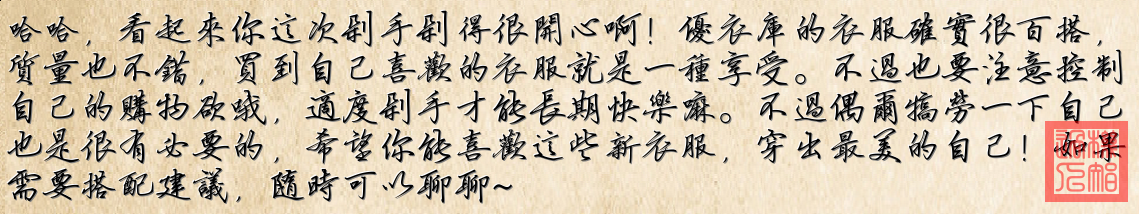 哈哈，看起來你這次剁手剁得很開心啊！優衣庫的衣服確實很百搭，
質量也不錯，買到自己喜歡的衣服就是一種享受。不過也要注意控制
自己的購物欲哦，適度剁手才能長期快樂嘛。不過偶爾犒勞一下自己
也是很有必要的，希望你能喜歡這些新衣服，穿出最美的自己！如果
需要搭配建議，隨時可以聊聊~